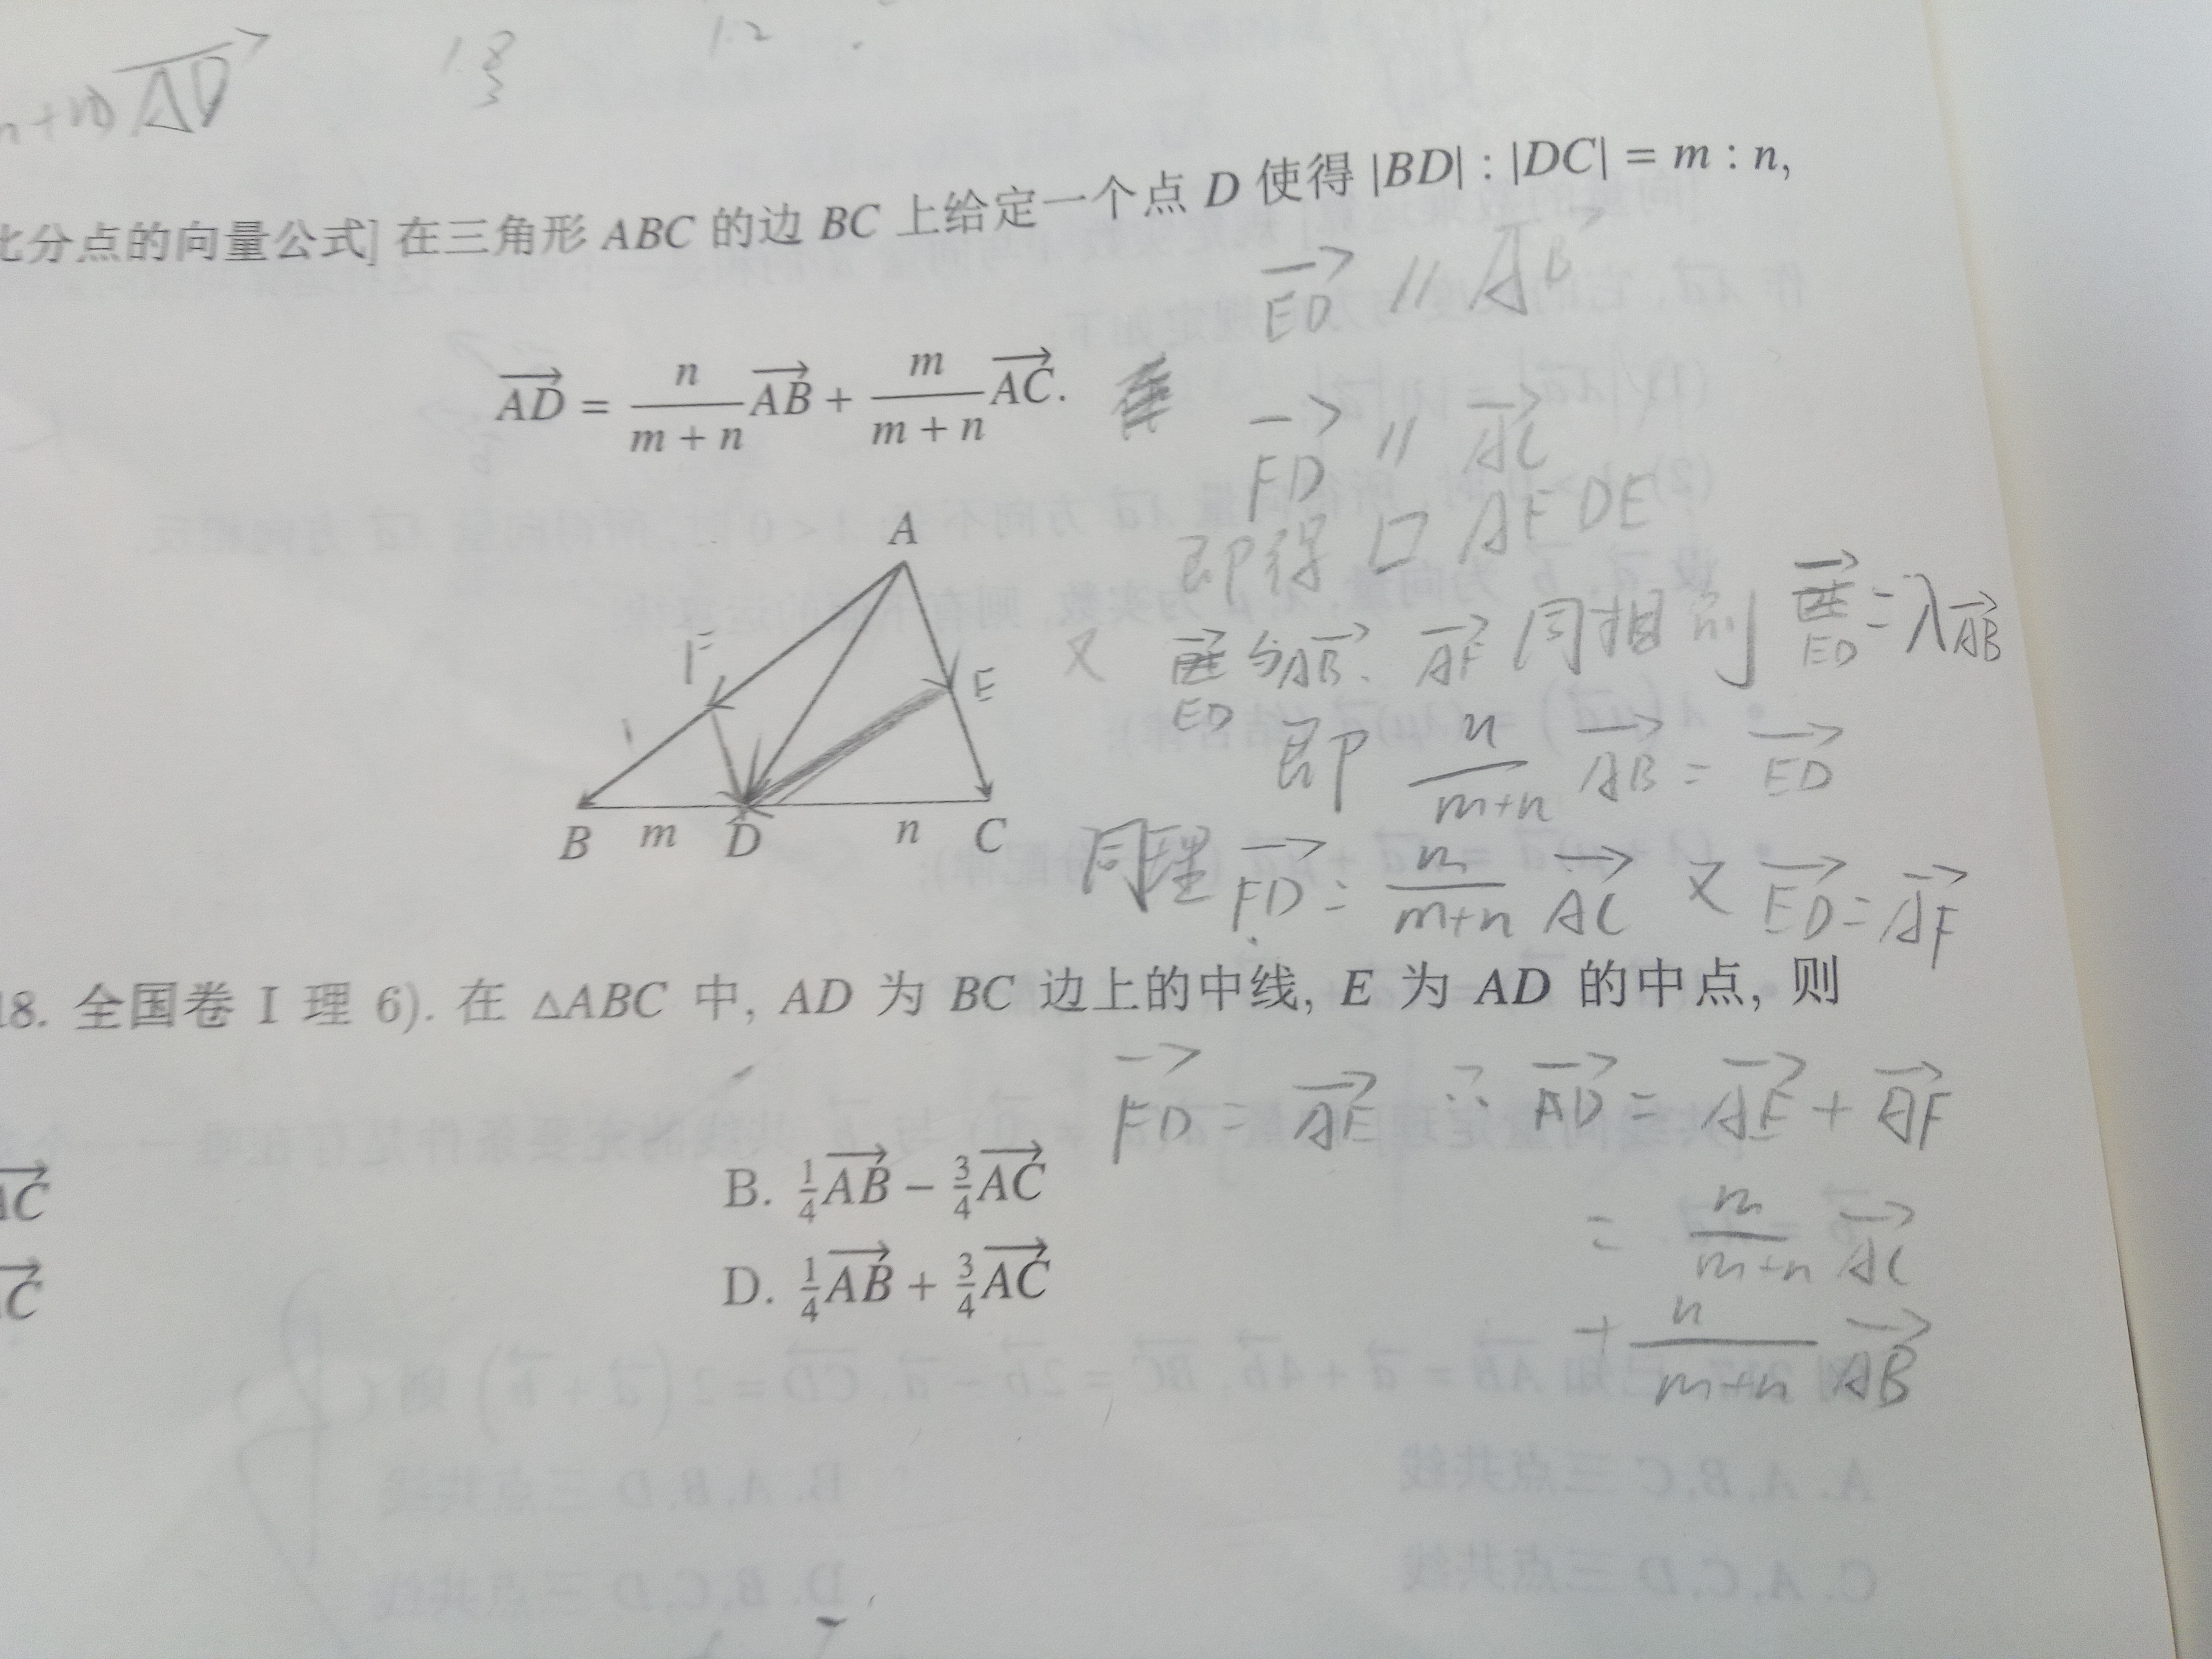 +n) \overrightarrow{AD}
1.8
3
1.2
比分点的向量公式] 在三角形 ABC 的边 BC 上给定一个点 D 使得 |BD| : |DC| = m : n,
\overrightarrow{ED} // \overrightarrow{AB}
\overrightarrow{AD} = \frac{n}{m+n}\overrightarrow{AB} + \frac{m}{m+n}\overrightarrow{AC}.
\overrightarrow{FD} // \overrightarrow{AC}
即得 □ AFDE
A
F
E
B m D n C
又 \overrightarrow{ED} 与 \overrightarrow{AB}、\overrightarrow{AF} 同 则 \overrightarrow{ED} = λ\overrightarrow{AB}
即 \frac{n}{m+n} \overrightarrow{AB} = \overrightarrow{ED}
同理 \overrightarrow{FD} = \frac{m}{m+n} \overrightarrow{AC} 又 \overrightarrow{ED} = \overrightarrow{AF}
18. 全国卷 I 理 6). 在 △ABC 中, AD 为 BC 边上的中线, E 为 AD 的中点, 则
\overrightarrow{FD} = \overrightarrow{AE} ∴ \overrightarrow{AD} = \overrightarrow{AE} + \overrightarrow{AF}
= \frac{m}{m+n} \overrightarrow{AC}
+ \frac{n}{m+n} \overrightarrow{AB}
\overrightarrow{AC}
B. \frac{1}{4}\overrightarrow{AB} − \frac{3}{4}\overrightarrow{AC}
\overrightarrow{C}
D. \frac{1}{4}\overrightarrow{AB} + \frac{3}{4}\overrightarrow{AC}